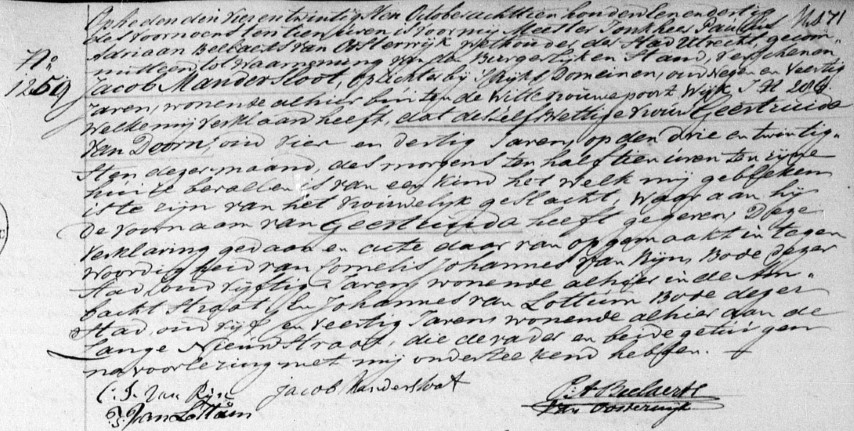 Op heden den vier en twintigsten October achttien honderd een en dertig No 171
des voornoens ten tien uren is voor mij Meester Jonkheer Paulus
Adriaan Beelaerts van Oosterwijk Wethouder der Stad Utrecht, gecom-
mitteerd tot waarneming van den Burgerlijken Stand, verschenen
No
1259
Jacob Mandersloot, opzichter bij 's Rijks Domeinen, oud negen en veertig
Jaren, wonende alhier buiten de Wittevrouwepoort Wijk I
welke mij verklaard heeft, dat deszelfs wettige vrouw Geertruida
van Doorn, oud vier en dertig Jaren, op den drie en twintig-
sten dezer maand, des morgens ten half tien uren ten zijne
huize bevallen is van een kind het welk mij gebleken
is te zijn van het vrouwelijk geslacht, waar aan hij
de voornaam van Geertruida heeft gegeven, Deze
verklaring gedaan en acte daar van opgemaakt in tegen
woordigheid van Cornelis Johannes van Rijn, Bode dezer
Stad, oud vijftig Jaren, wonende alhier in de Am-
bacht Straat, En Johannes van Lottum Bode dezer
Stad, oud vijf en veertig Jaren, wonende alhier aan de
Lange Nieuwstraat, die de vader en beide getuigen
na voorlezing met mij onderteekend hebben.
C. J. van Rijn Jacob Mandersloot P A Beelaerts
J. van Lottum van Oosterwijk